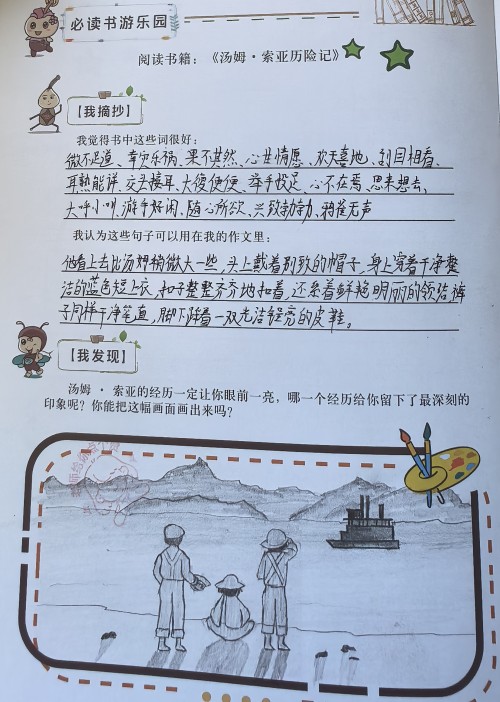 必读书游乐园
阅读书籍：《汤姆·索亚历险记》
【我摘抄】
我觉得书中这些词很好：
微不足道、幸灾乐祸、果不其然、心甘情愿、欢天喜地、刮目相看、
耳熟能详、交头接耳、大徒便便、举手投足、心不在焉、思来想去、
大呼小叫、游手好闲、随心所欲、兴致勃勃、鸦雀无声
我认为这些句子可以用在我的作文里：
他看上去比汤姆稍微大一些，头上戴着别致的帽子，身上穿着干净整
洁的蓝色短上衣，扣子整整齐齐地扣着，还系着鲜艳明丽的领结，裤
子同样干净笔直，脚下踩着一双光洁锃亮的皮鞋。
【我发现】
汤姆·索亚的经历一定让你眼前一亮，哪一个经历给你留下了最深刻的
印象呢？你能把这幅画面画出来吗？